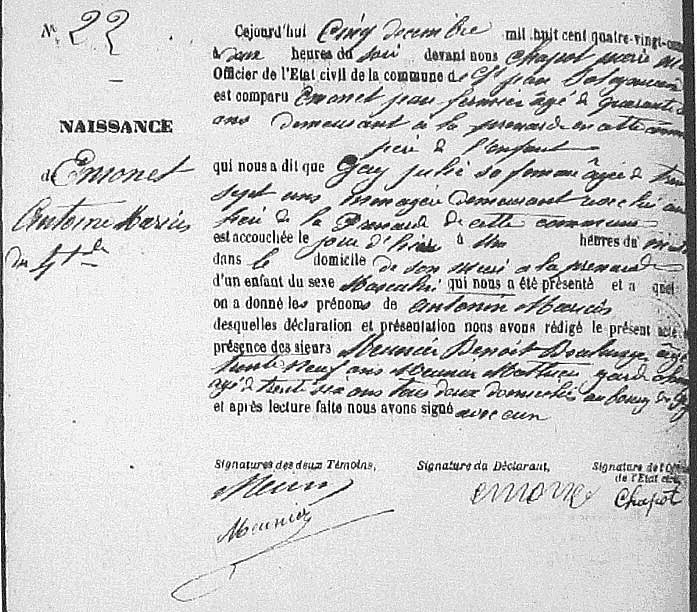 N° 22
NAISSANCE
de Emonet
Antoine Marius
du 4
Cejourd'hui Cinq décembre mil huit cent quatre-vingt-
à deux heures du soir devant nous Chapot pierre
Officier de l'Etat civil de la commune de St jean
est comparu Emonet jean fermier âgé de quarante
ans demeurant à la prenarde en cette
père de l'enfant
qui nous a dit que Gay julie sa femme âgée de
sept ans ménagère demeurant avec lui au
lieu de la Prenarde de cette commune
est accouchée le jour d'hier à heures du
dans le domicile de son mari a la prenarde
d'un enfant du sexe Masculin qui nous a été présenté et a quel
on a donné les prénoms de Antonin Marius
desquelles déclaration et présentation nous avons rédigé le présent acte
présence des sieurs Meunier Benoit Boulanger âgé
trente neuf ans Meunier Mathieu garde
âgé de trente six ans tous deux domiciliés au bourg de
et après lecture faite nous avons signé avec eux
Signatures des deux Témoins,
Signature du Déclarant,
Signature de l'Offi
de l'Etat civil,
Meunier
Meunier
emonet
Chapot